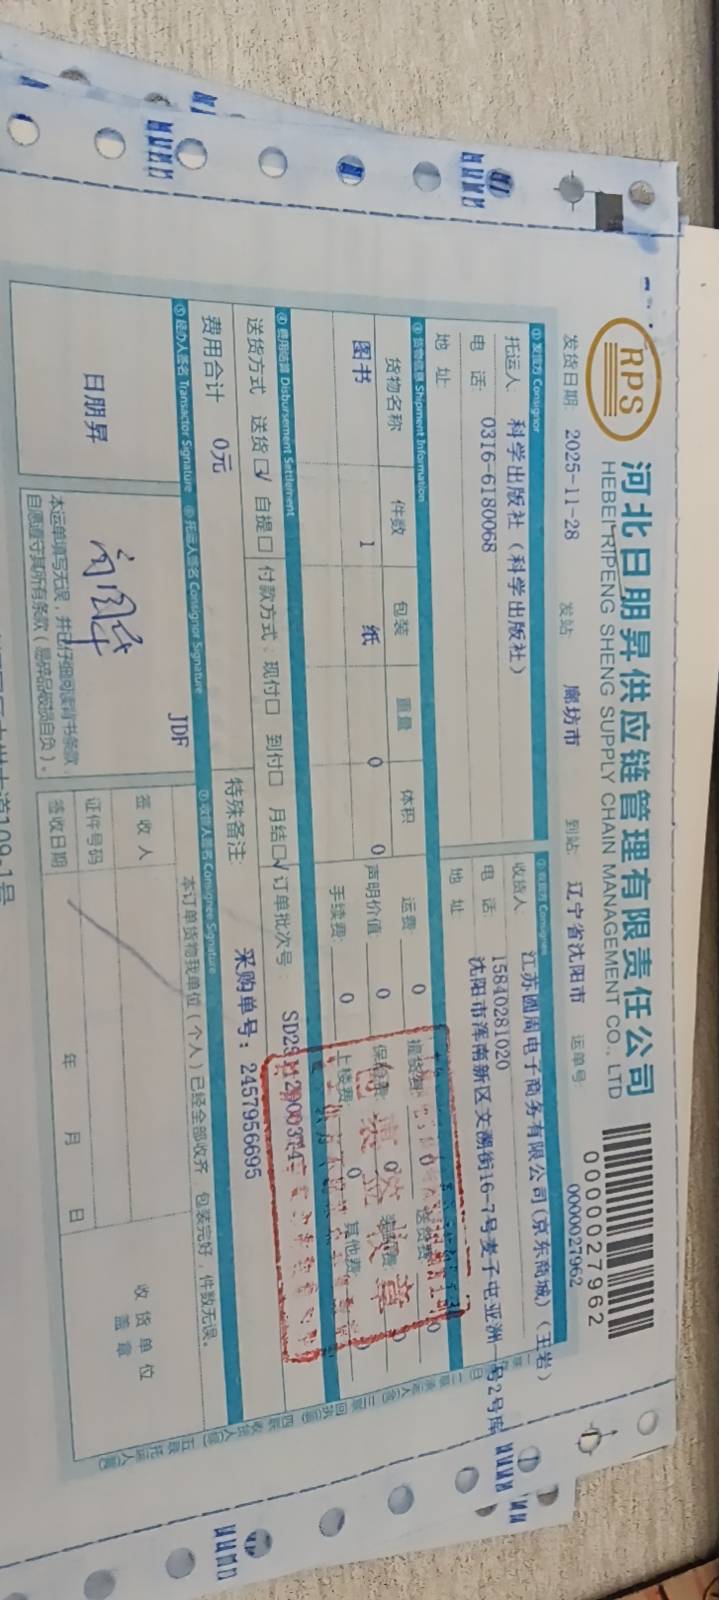 RPS
河北日朋昇供应链管理有限责任公司
HEBEI RIPENG SHENG SUPPLY CHAIN MANAGEMENT CO., LTD
0000027962
发货日期: 2025-11-28 发站: 廊坊市 到站: 辽宁省沈阳市 运单号: 0000027962
① 发货方 Consignor ② 收货方 Consignee
托运人: 科学出版社（科学出版社） 收货人: 江苏圆周电子商务有限公司(京东商城)（王岩）
电 话: 0316-6180068 电 话: 15840281020
地 址: 地 址: 沈阳市浑南新区文溯街16-7号麦子屯亚洲一号2号库
③ 货物信息 Shipment Information
货物名称 件数 包装 重量 体积 运费: 0 提货费: 0 送货费: 0
图书 1 纸 0 0 声明价值: 0 保价费: 0
手续费: 0 上楼费: 0 其他费: 0
④ 费用结算 Disbursement Settlement
送货方式 送货☑ 自提□ 付款方式: 现付□ 到付□ 月结☑ 订单批次号:
费用合计 0元 特殊备注: 采购单号: 2457956695
⑤ 经办人签名 Transactor Signature ⑥ 托运人签名 Consignor Signature ⑦ 收货人签名 Consignee Signature
日朋昇
JDF
本运单填写无误，并已仔细阅读背书条款，
自愿遵守其所有条款(易碎品破损自负)。
本订单货物我单位(个人)已经全部收齐，包装完好，件数无误。
签 收 人
证件号码
签收日期 年 月 日
收货单位
盖 章
109-1号